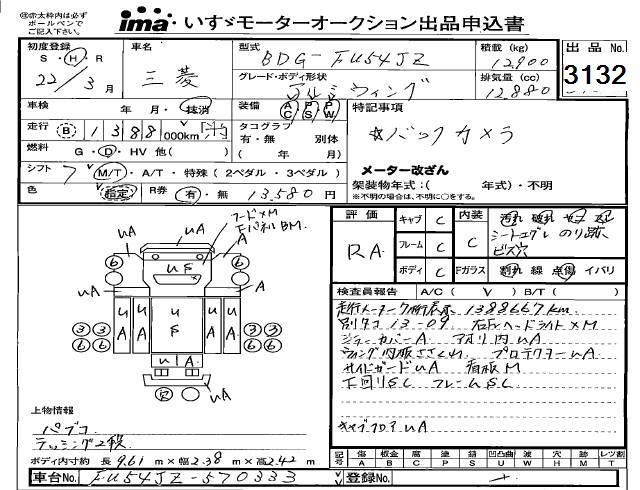 ㊟赤太枠内は必ず
ボールペンで
ご記入下さい。
ima いすゞモーターオークション出品申込書
初度登録 S・H・R 22/3月
車名 三菱
型式 BDG-FU54JZ
積載 (kg) 12,900
出品 No. 3132
グレード・ボディ形状 アルミウィング
排気量 (cc) 12880
車検 年・月・抹消
装備 AC PS PW
特記事項
走行 B 1388 000km
タコグラフ 有・無 別体 ( 年 月)
☆バックカメラ
燃料 G・D・HV 他( )
シフト 7 M/T・A/T・特殊 (2ペダル・3ペダル)
メーター改ざん
色 指定 R券 有・無 13,580 円
架装物年式:( 年式)・不明
※不明の場合は、不明に○をする。
評価 RA
キャブ C
フレーム C
ボディ C
内装 C
シートエグレ のり跡
ビス穴
Fガラス 割れ 線 点傷 イバリ
フードXM
FパネルBM
検査員報告 A/C ( V ) B/T ( )
走行メーター7桁表示 1388667km
別タコ 13-09 右Fヘッドライト×M
シャシーカバーA アオリ内uA
ウィング内板ささくれ プロテクターuA
サイドガードuA 看板M
下回りSC フレームSC
キャブフロアuA
uA
uA
A
A
uA
uS
uA
uS
uA
uA
A
uA
R
上物情報
パブコ
ラッシング2段
ボディ内寸約 長 9.61 m×幅 2.38 m×高 2.42 m
記号 傷 A 板金 B 腐 C 塗 P 錆 S 凹凸曲 U 波 W 穴 H 跡 M レツ割 T
車台No. FU54JZ-570333
登録No.